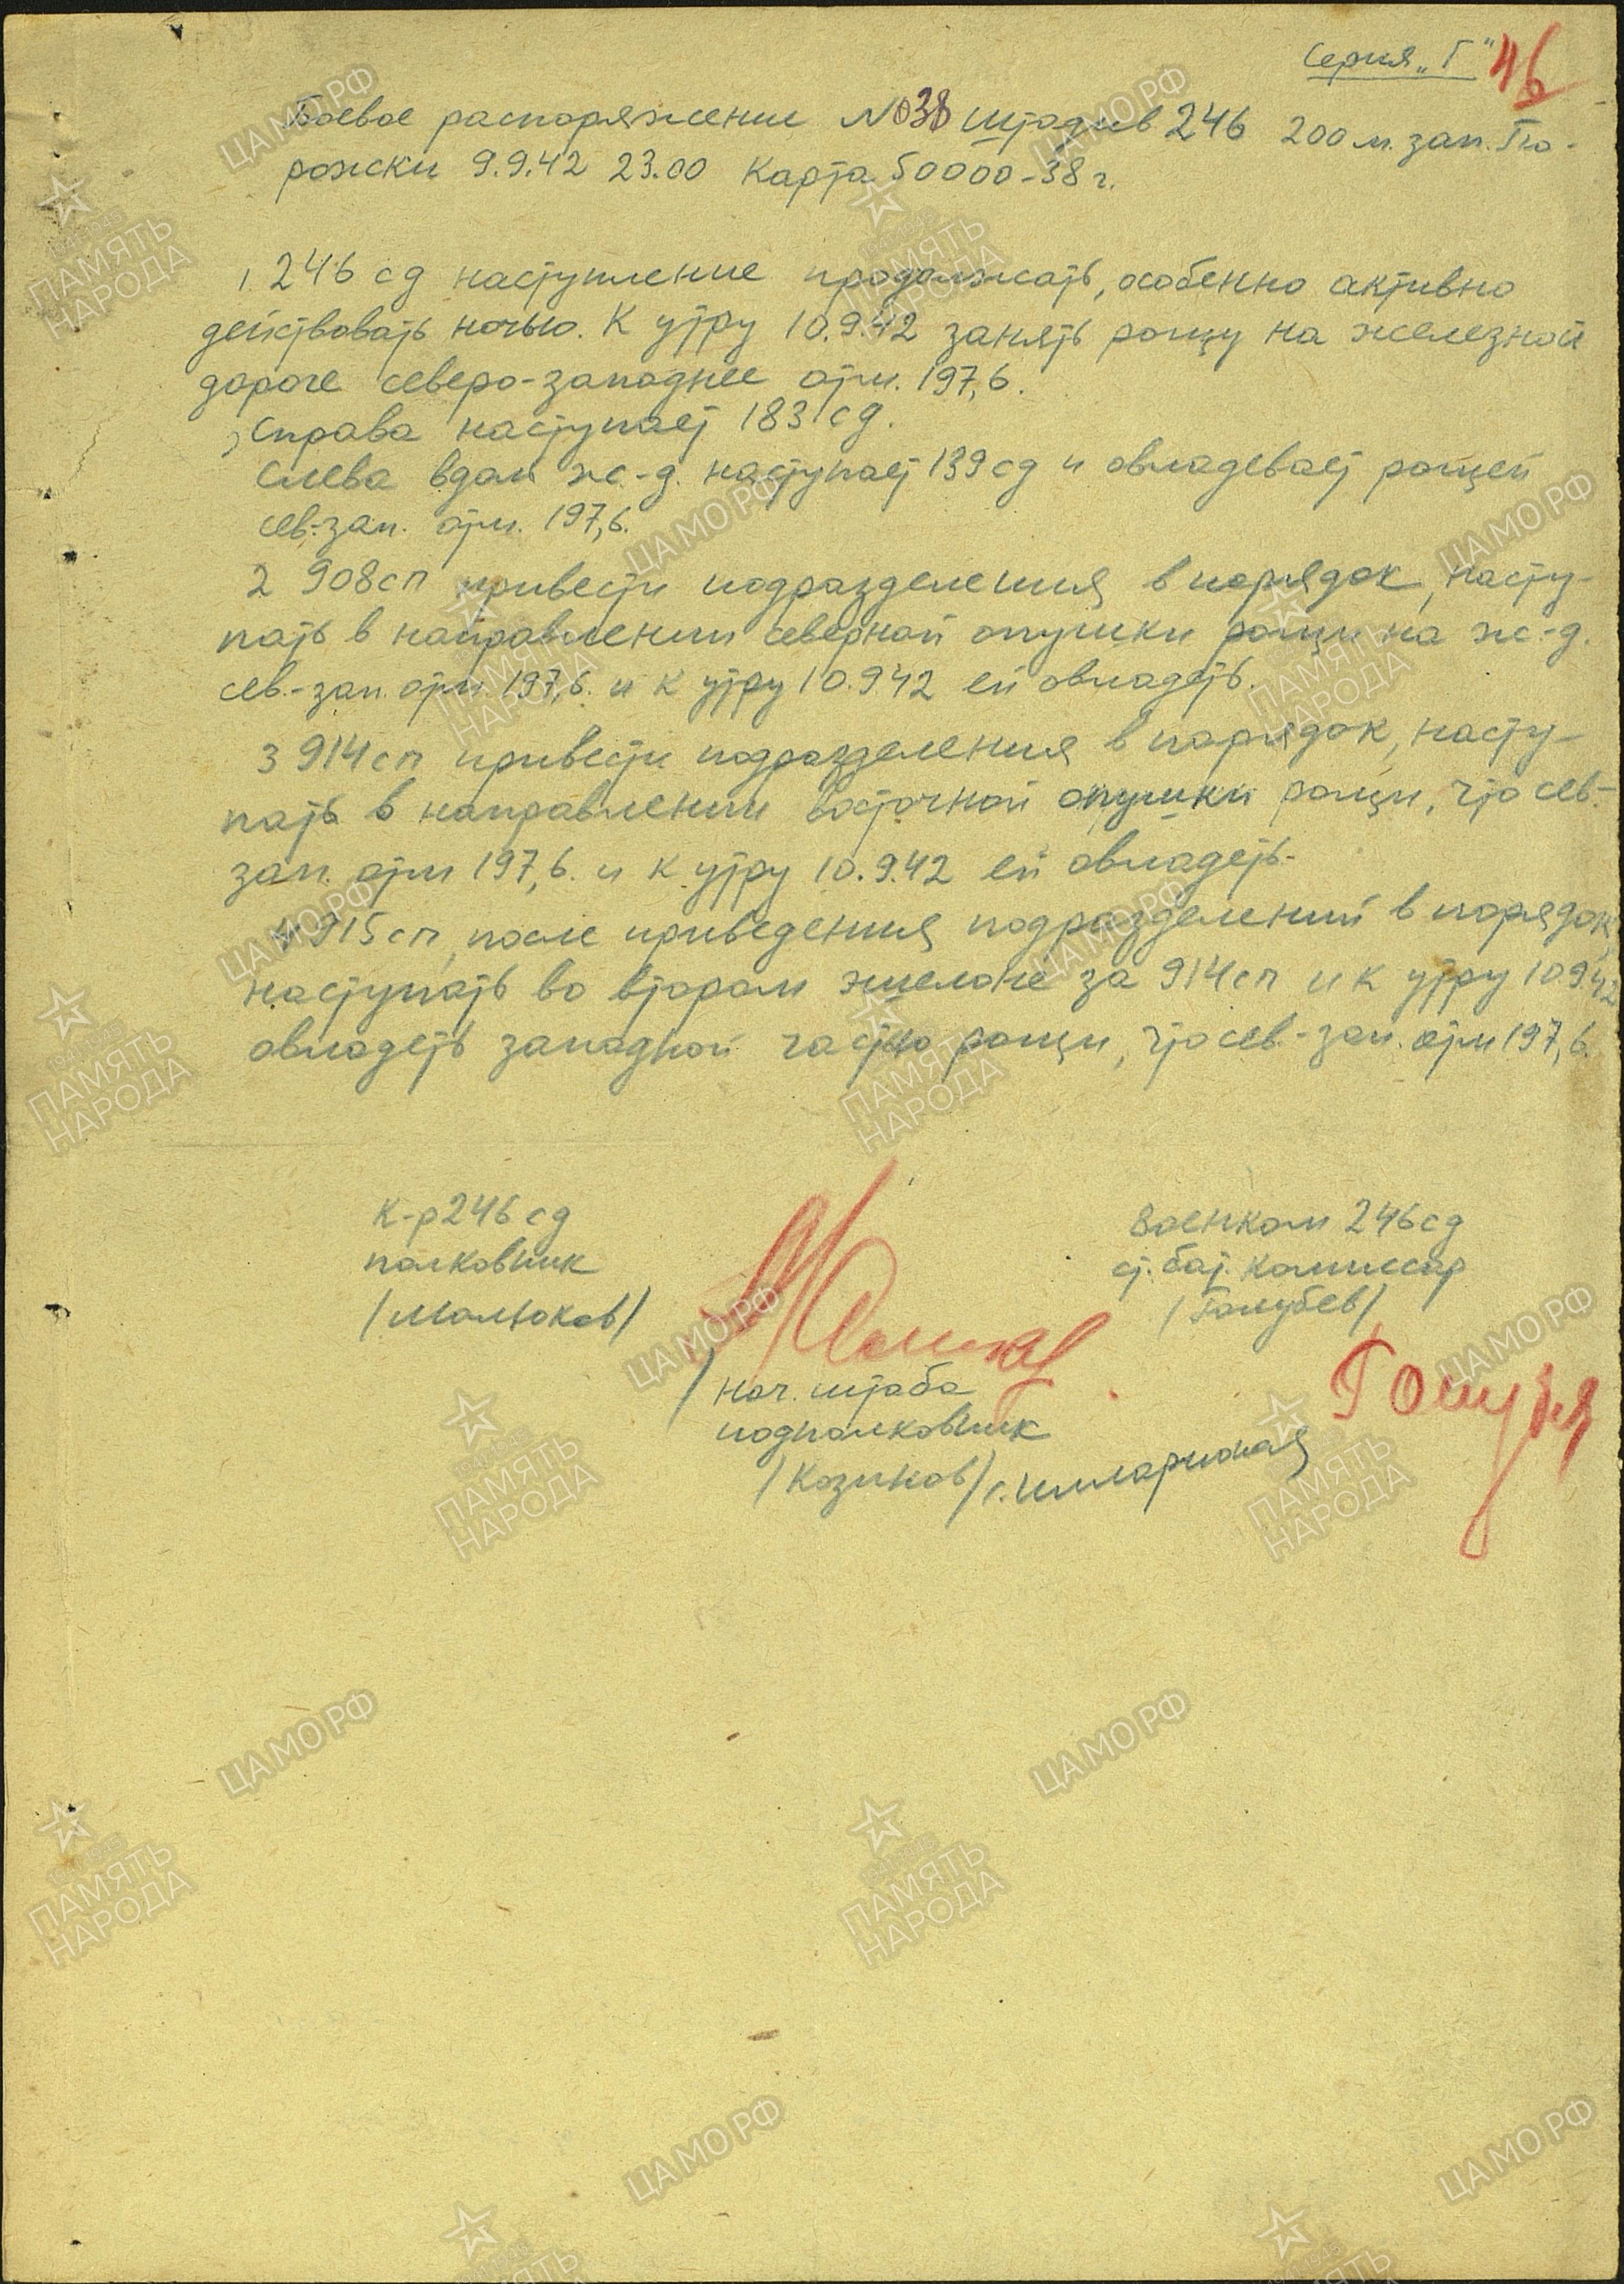 Серия „Г" 46
Боевое распоряжение №038 Штадив 246 200 м. зап. По-
рожски 9.9.42 23.00 Карта 50000-38 г.
1 246 сд наступление продолжать, особенно активно
действовать ночью. К утру 10.9.42 занять рощу на железной
дороге северо-западнее отм. 197,6.
Справа наступает 183 сд.
Слева вдоль ж.-д. наступает 139 сд и овладевает рощей
сев.-зап. отм. 197,6.
2 908 сп привести подразделения в порядок, насту-
пать в направлении северной опушки рощи на ж.-д.
сев.-зап. отм. 197,6. и к утру 10.9.42 ей овладеть.
3 914 сп привести подразделения в порядок, насту-
пать в направлении восточной опушки рощи, что сев.-
зап. отм 197,6. и к утру 10.9.42 ей овладеть.
4 915 сп, после приведения подразделений в порядок
наступать во втором эшелоне за 914 сп и к утру 10.9.42
овладеть западной частью рощи, что сев.-зап. отм 197,6.
К-р 246 сд
полковник
/Мольков/
Военком 246 сд
ст. бат. комиссар
/Голубев/
Нач. штаба
подполковник
/Козинов/
ЦАМО.РФ
ПАМЯТЬ
НАРОДА